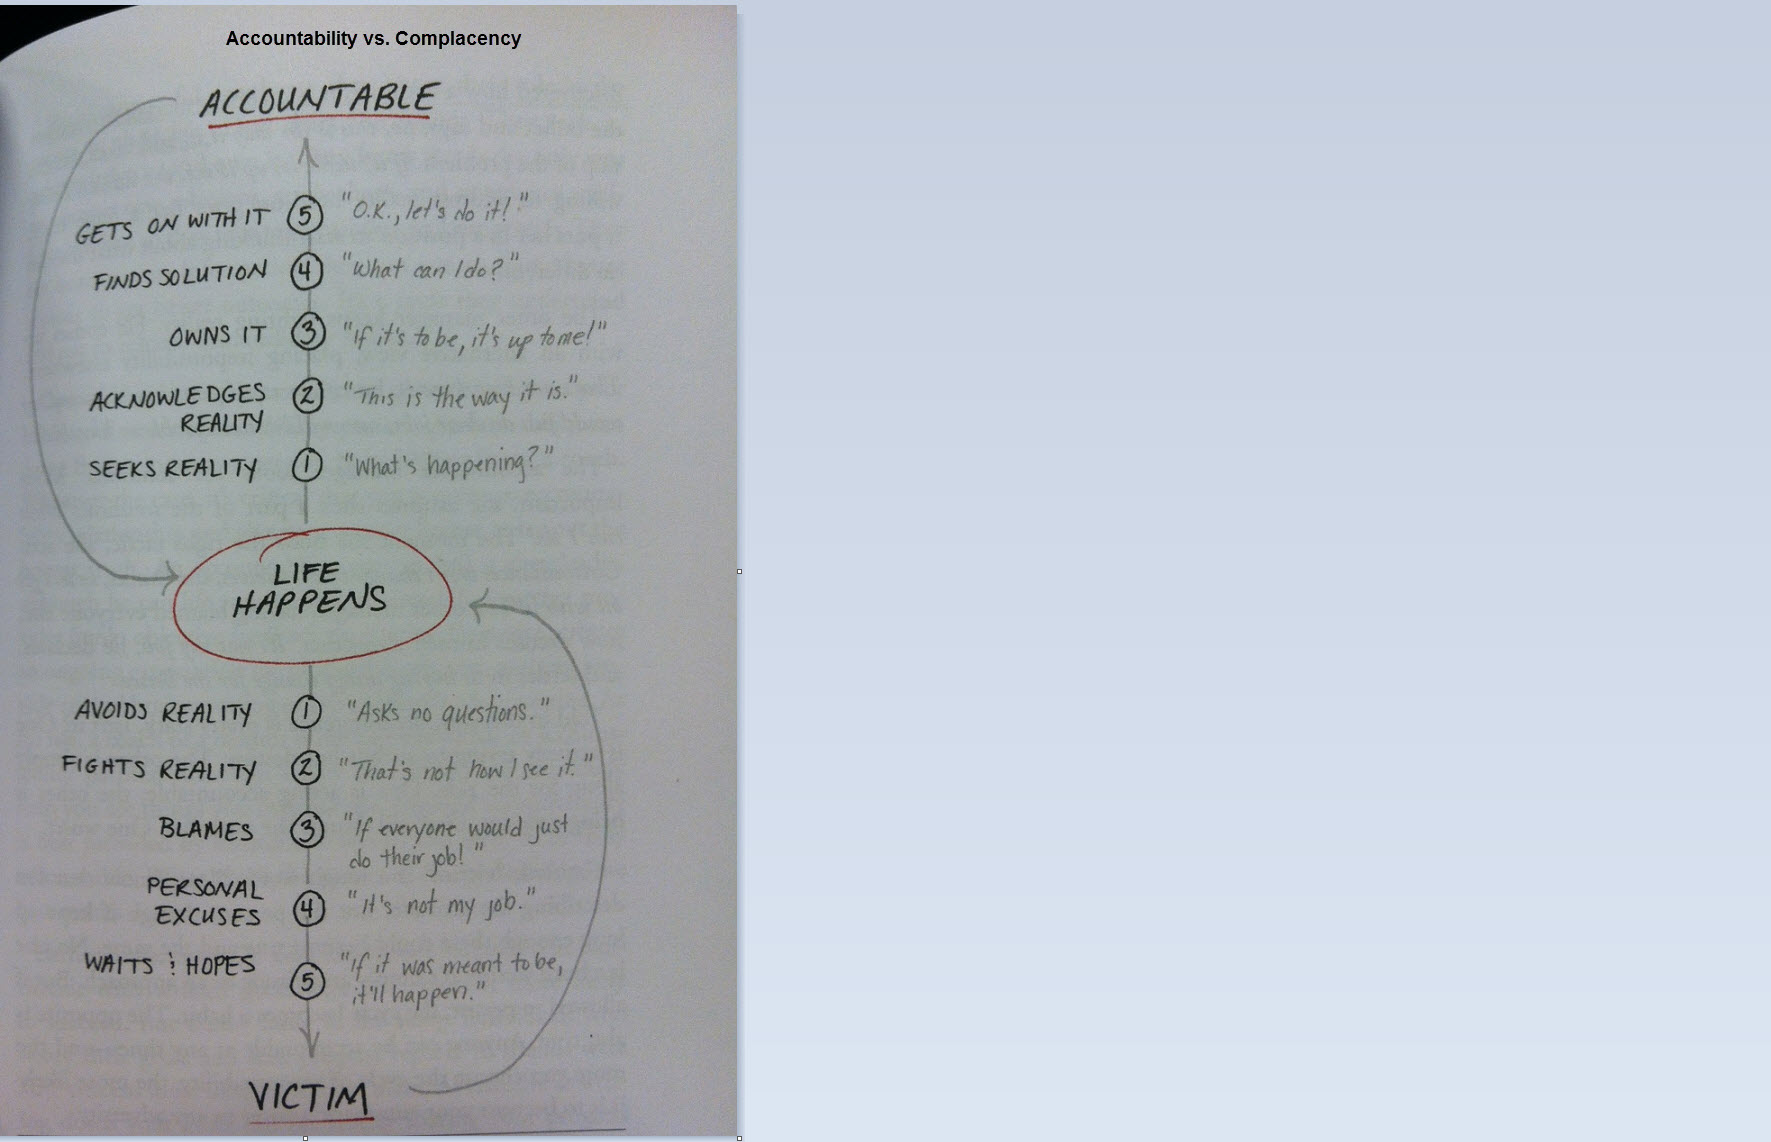 Accountability vs. Complacency
ACCOUNTABLE
GETS ON WITH IT 5 "O.K., let's do it!"
FINDS SOLUTION 4 "What can I do?"
OWNS IT 3 "If it's to be, it's up to me!"
ACKNOWLEDGES 2 "This is the way it is."
REALITY
SEEKS REALITY 1 "What's happening?"
LIFE
HAPPENS
AVOIDS REALITY 1 "Asks no questions."
FIGHTS REALITY 2 "That's not how I see it."
BLAMES 3 "If everyone would just
do their job!"
PERSONAL
EXCUSES 4 "It's not my job."
WAITS & HOPES "If it was meant to be,
5 it'll happen."
VICTIM